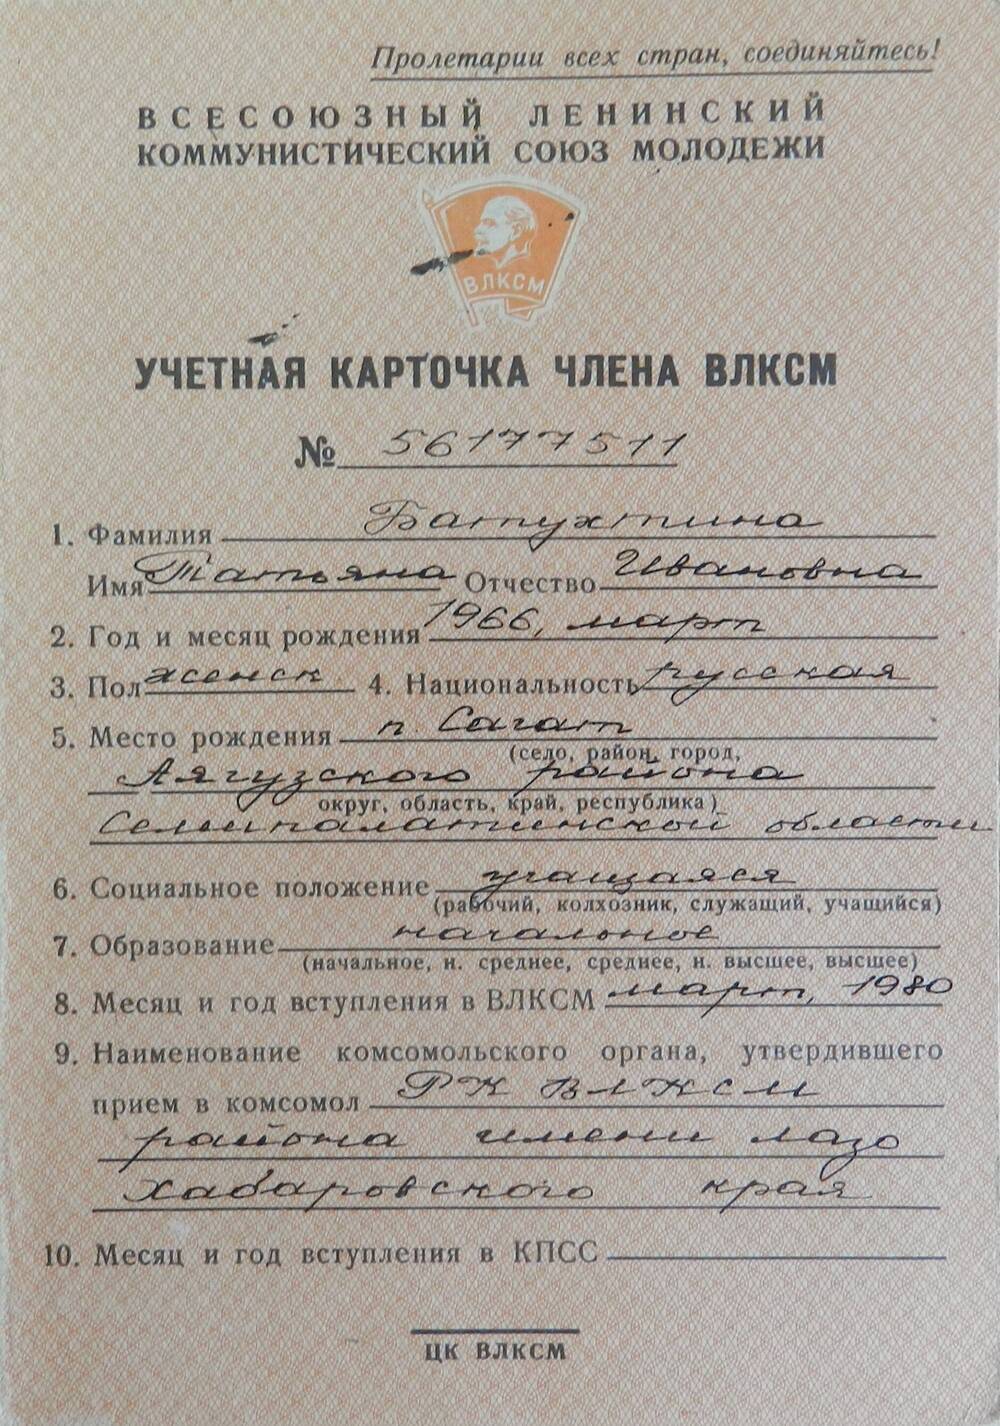 Пролетарии всех стран, соединяйтесь!
ВСЕСОЮЗНЫЙ ЛЕНИНСКИЙ
КОММУНИСТИЧЕСКИЙ СОЮЗ МОЛОДЕЖИ
ВЛКСМ
УЧЕТНАЯ КАРТОЧКА ЧЛЕНА ВЛКСМ
№ 56177511
1. Фамилия Батухтина
Имя Татьяна Отчество Ивановна
2. Год и месяц рождения 1966, март
3. Пол женск 4. Национальность русская
5. Место рождения п. Сагат
(село, район, город,
Аягузского района
округ, область, край, республика)
Семипалатинской области
6. Социальное положение учащаяся
(рабочий, колхозник, служащий, учащийся)
7. Образование начальное
(начальное, н. среднее, среднее, н. высшее, высшее)
8. Месяц и год вступления в ВЛКСМ март, 1980
9. Наименование комсомольского органа, утвердившего
прием в комсомол РК ВЛКСМ
района имени лазо
Хабаровского края
10. Месяц и год вступления в КПСС
ЦК ВЛКСМ